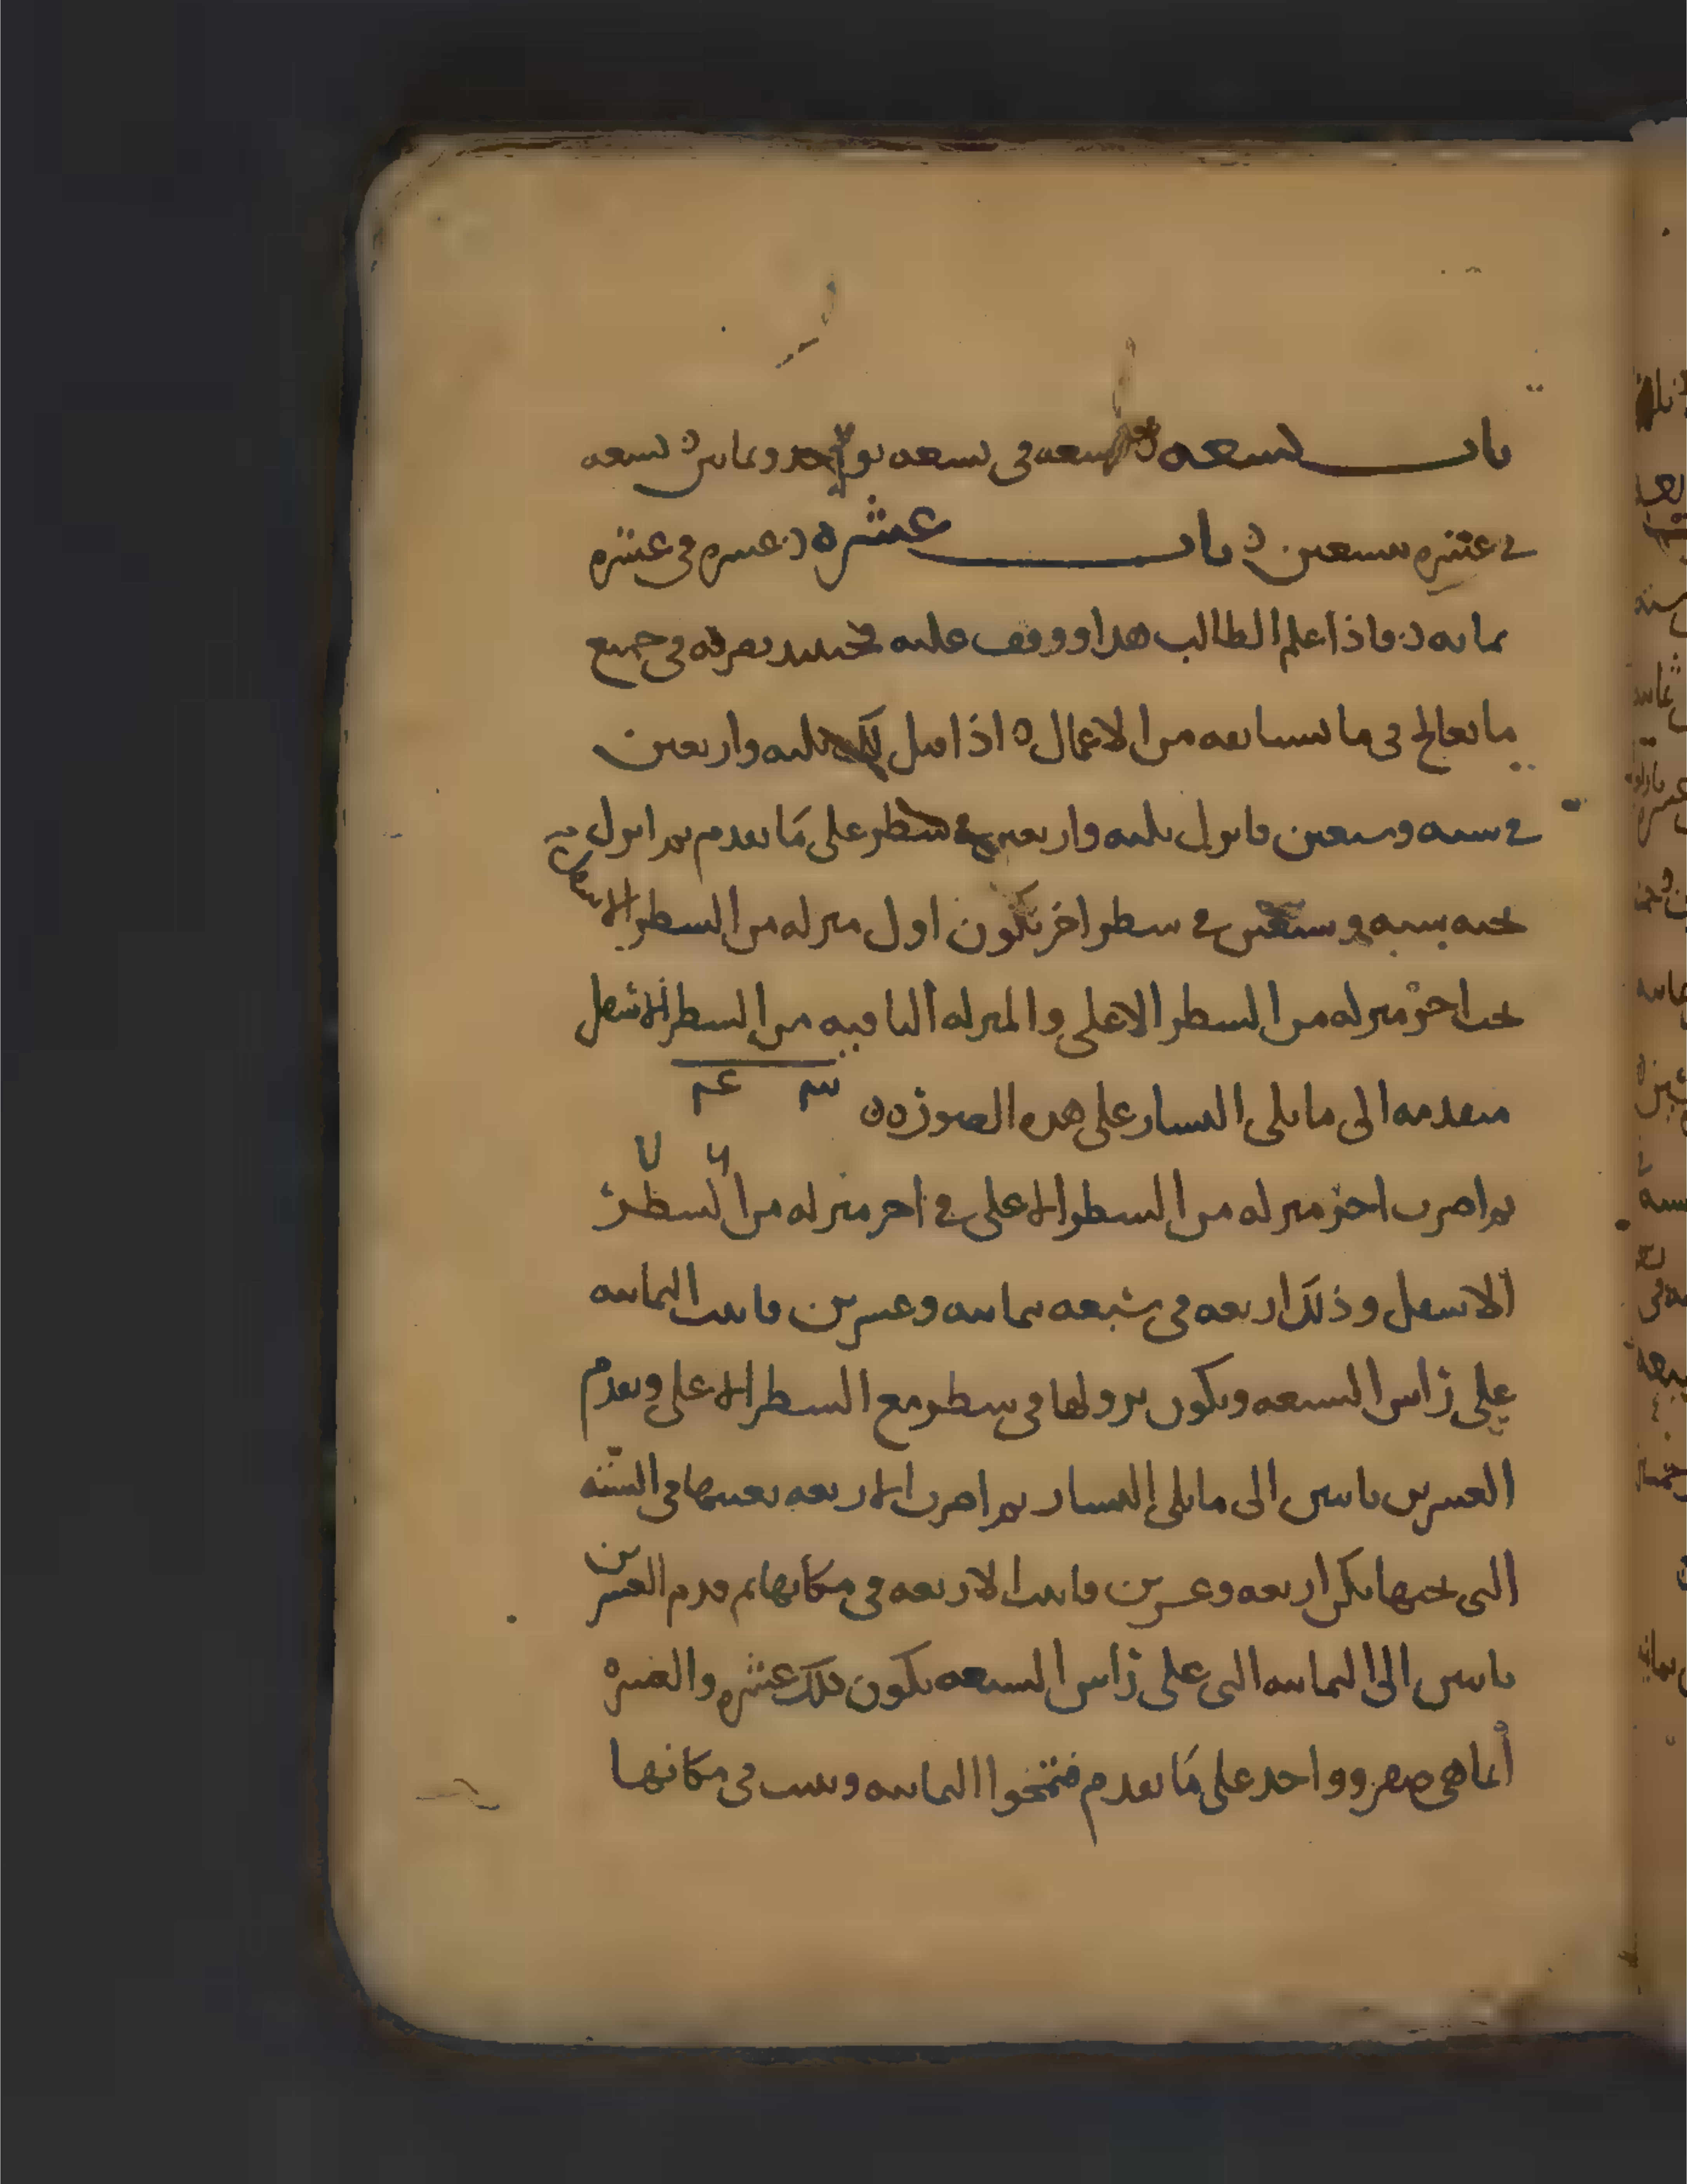 باب تسعة تسعه في تسعه بواحد وثمانين تسعه
في عشره بتسعين باب عشره عشره في عشره
بمايه فاذا علم الطالب هذا ووقف عليه فحينيد يعرفه في جميع
ما يعالج في ما يستانفه من الاعمال اذا قيل لك ثلثه واربعين
في سته وسبعين فانزل ثلثه واربعين في سطر على ما تقدم ثم انزل من
تحته سته وسبعين في سطر اخر يكون اول منزله من السطر الاسفل
تحت اخر منزله من السطر الاعلى والمنزله الباقيه من السطر الاسفل
متقدمه الى ما يلى اليسار على هذه الصوره
ثم اضرب اخر منزله من السطر الاعلى في اخر منزله من السطر
الاسفل وذلك اربعه في سبعه بمانيه وعشرين فاثبت الثمانيه
على راس السبعه ويكون نزولها في سطر مع السطر الاعلى وتقدم
العشرين باثنين الى ما يلى اليسار ثم اضرب الاربعه بعينها في السته
التى تحتها يكن اربعه وعشرين فاثبت الاربعه في مكانها ثم قدم العشرين
باثنين الى الثمانيه التى على راس السبعه يكون ذلك عشره والعشره
انما هى صفر وواحد على ما تقدم فتمحوا الثمانيه وتثبت في مكانها